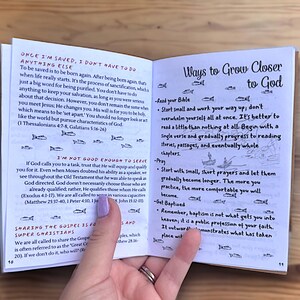 ONCE I'M SAVED, I DON'T HAVE TO
DO ANYTHING ELSE
To be saved is to be born again. After being born again, that's
when life really starts. It's the process of sanctification, which is
just a big word for being purified. You don't have to do
anything to keep your salvation, as long as you were sincere
about that decision. However, you don't remain the same when
you meet Jesus; He changes you. His will is for you to be holy,
which means to be 'set apart.' You should no longer look or act
like the world but pursue characteristics of God.
(1 Thessalonians 4:7-8, Galatians 5:16-26)
I'M NOT GOOD ENOUGH TO SERVE
If God calls you to a task, trust that He will equip
you for it. Even when Moses doubted his ability as a speaker, we
see throughout the Old Testament that he was able to speak as
God directed. God doesn't necessarily choose those who are
already qualified; rather, He qualifies those whom He calls
(Exodus 4:1-17). We are all called to serve in various capacities
(Matthew 25:35-40, 1 Peter 4:10,
SHARING THE GOSPEL IS
SUPER CHRISTIANS
We are all called to share the Gospel
which is often referred to as the "Great
20). If you don't, who will?
10
Ways to Grow Closer
to God
Read your Bible
Start small and work your way up; don't
overwhelm yourself all at once. It's better to
read a little than nothing at all. Begin with a
single verse and gradually progress to reading
stories, passages, and eventually whole
chapters.
Pray
Start with small, short prayers and let them
gradually become longer. The more you
practice, the more comfortable you will
become.
Get Baptized
Remember, baptism is not what gets you into
heaven; it is a public profession of your faith.
It outwardly demonstrates what has taken
place
11